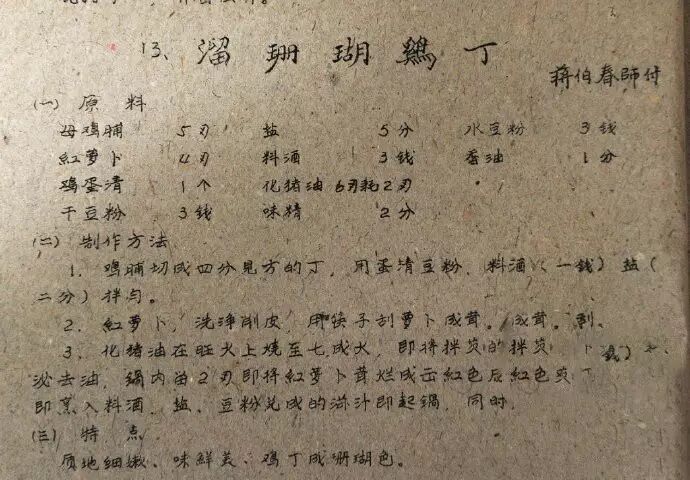 13、溜珊瑚鷄丁
蔣伯春師付
(一) 原料
母鸡脯 5刃 盐 5分 水豆粉 3钱
紅萝卜 4刃 料酒 3钱 香油 1分
鸡蛋清 1个 化猪油 6刃耗2刃
干豆粉 3钱 味精 2分
(二) 制作方法
1、鸡脯切成四分見方的丁，用蛋清豆粉、料酒（一钱）盐（
二分）拌匀。
2、紅萝卜，洗净削皮，用筷子刮萝卜成茸。成茸。
3、化猪油在旺火上烧至七成火，即将拌
泌去油，鍋内留2刃即将紅萝卜茸烂成 紅色后紅色
即烹入料酒、盐、豆粉兑成的滋汁即起鍋，同时
(三) 特点
质地细嫩、味鮮美、鸡丁成珊瑚色。